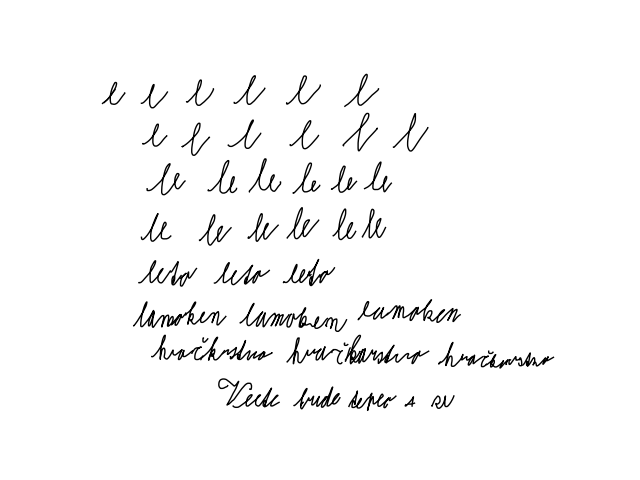 l l l l l l
l l l l l l
le le le le le le
le le le le le le
leto leto leto
lamoken lamoken lamoken
hračkrstvo hračkarstvo hračkarstvo
bude A RN